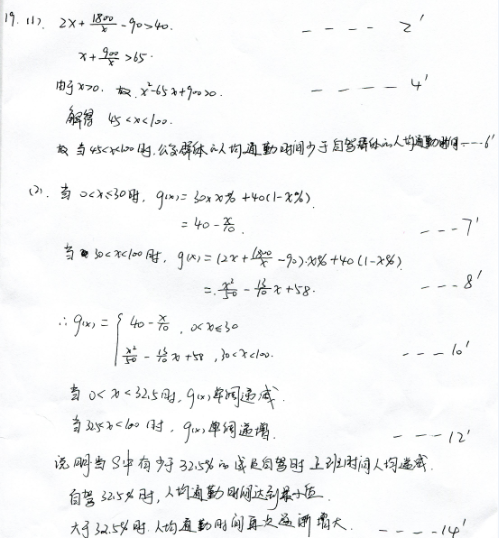 19. (1). 2x + 1800/x - 90 > 40. ---- 2'
x + 900/x > 65.
由于 x>0. 故. x²-65x+900>0. ---- 4'
解得 45<x<100.
故 当 45<x<100时, 公交群体的人均通勤时间少于自驾群体的人均通勤时间 ---- 6'
(2). 当 0<x≤30时, g(x) = 30·x% + 40(1-x%).
= 40 - x/10. --- 7'
当 30<x<100时, g(x) = (2x + 1800/x - 90)·x% + 40(1-x%).
= x²/50 - 13/10 x + 58. --- 8'
∴ g(x) = { 40 - x/10 , 0<x≤30
x²/50 - 13/10 x + 58 , 30<x<100. --- 10'
当 0<x<32.5时, g(x)单调递减.
当 32.5<x<100时, g(x)单调递增. ---- 12'
说明当S中有少于32.5%的成员自驾时 上班时间人均递减.
自驾32.5%时, 人均通勤时间达到最小值.
大于32.5%时. 人均通勤时间再次逐渐增大. ---- 14'